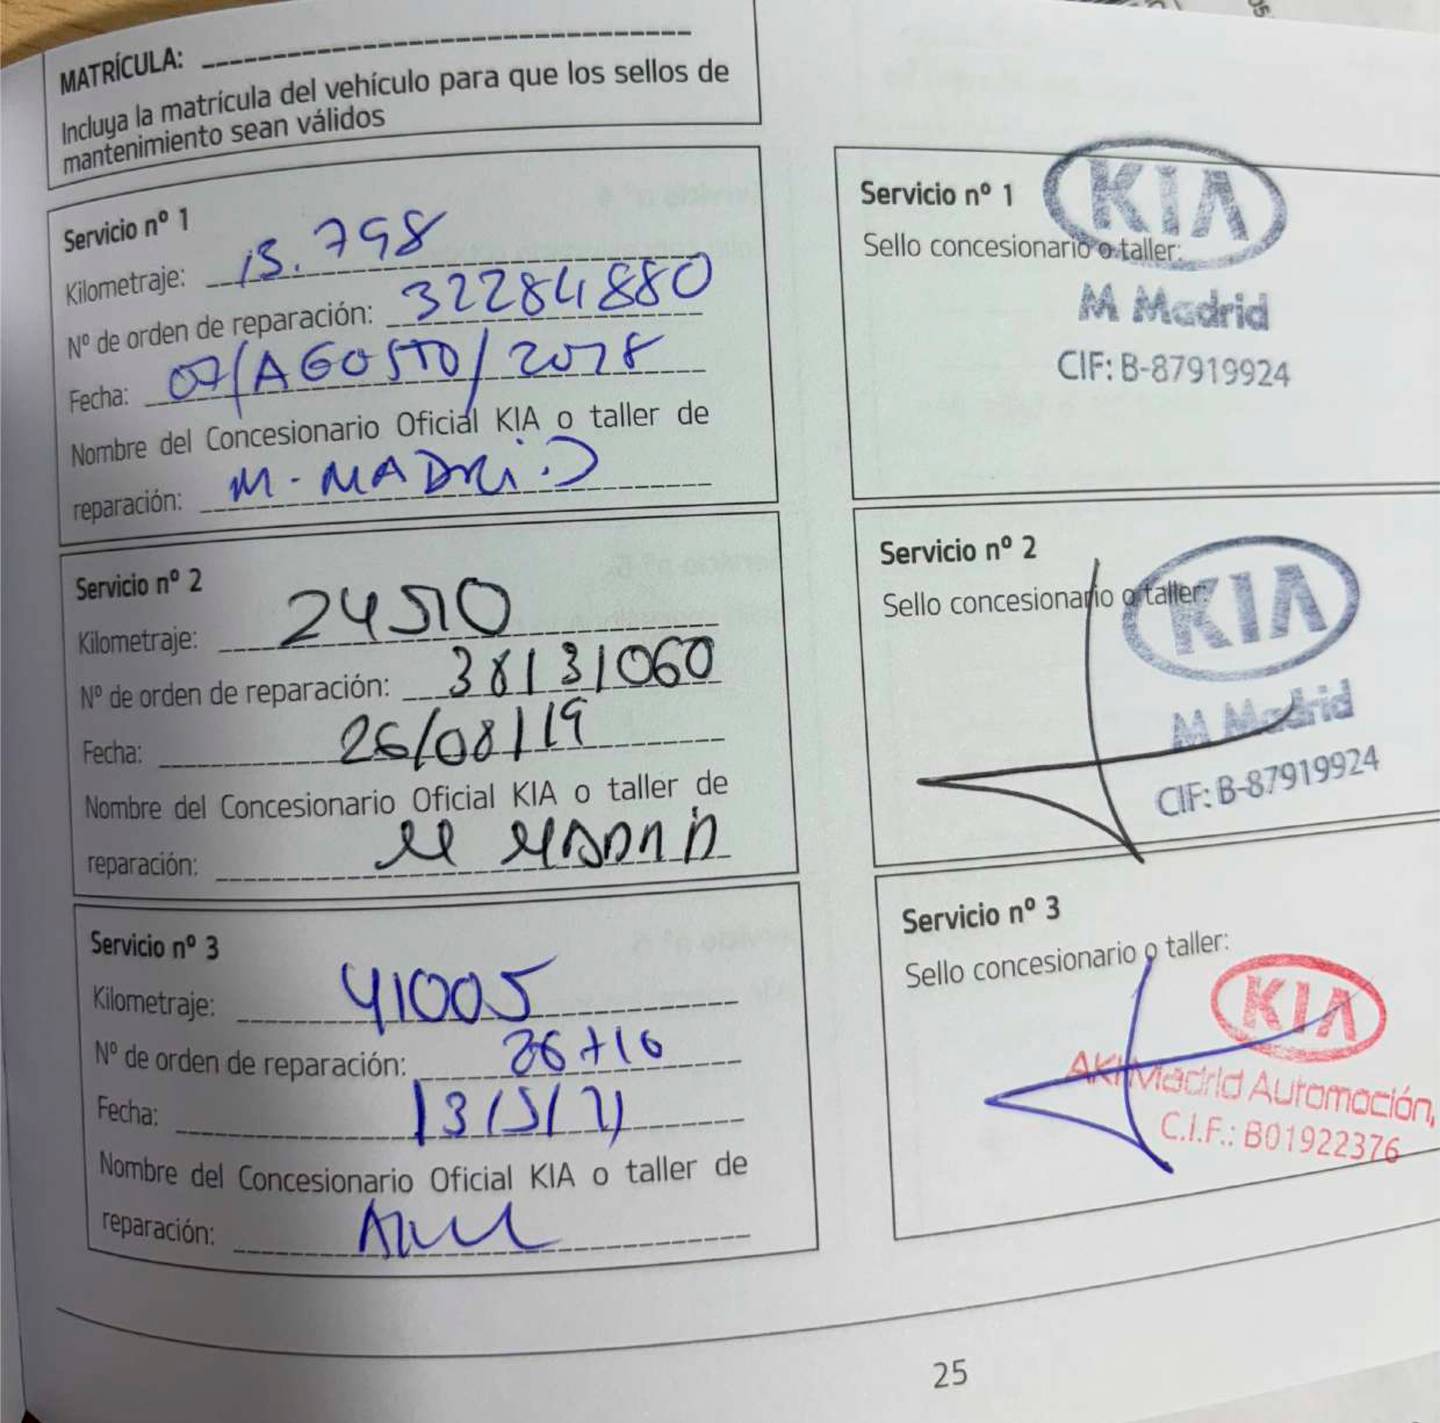 MATRÍCULA:
Incluya la matrícula del vehículo para que los sellos de
mantenimiento sean válidos
Servicio nº 1
Kilometraje: 15.798
Nº de orden de reparación: 32284880
Fecha: 07/AGOSTO/2018
Nombre del Concesionario Oficial KIA o taller de
reparación: M. MADRID
Servicio nº 1
Sello concesionario o taller:
KIA
M Madrid
CIF: B-87919924
Servicio nº 2
Kilometraje: 24510
Nº de orden de reparación: 38131060
Fecha: 26/08/19
Nombre del Concesionario Oficial KIA o taller de
reparación: M MADRID
Servicio nº 2
Sello concesionario o taller:
KIA
M Madrid
CIF: B-87919924
Servicio nº 3
Kilometraje: 41005
Nº de orden de reparación:
Fecha: 13/5/21
Nombre del Concesionario Oficial KIA o taller de
reparación:
Servicio nº 3
Sello concesionario o taller:
KIA
AKI Madrid Automoción,
C.I.F.: B01922376
25